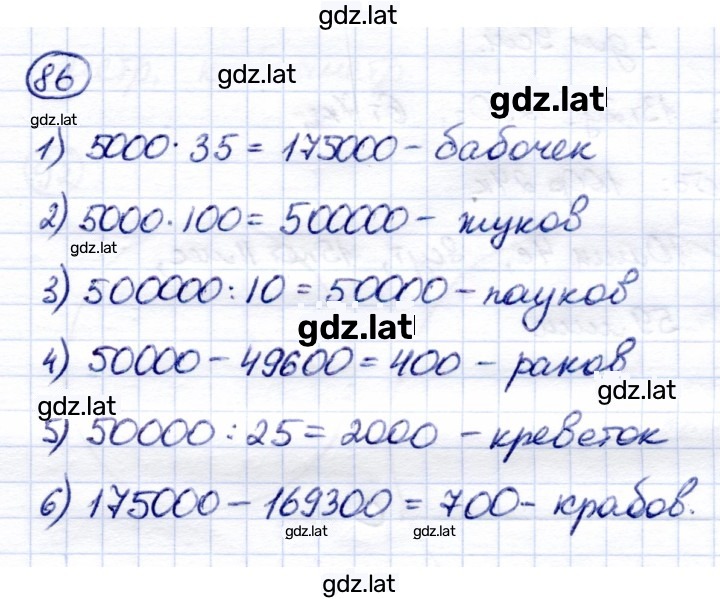 gdz.lat
86
gdz.lat
gdz.lat
gdz.lat
1) 5000 · 35 = 175000 - бабочек
2) 5000 · 100 = 500000 - жуков
gdz.lat
3) 500000 : 10 = 50000 - пауков
gdz.lat
4) 50000 - 49600 = 400 - раков
gdz.lat
gdz.lat
5) 50000 : 25 = 2000 - креветок
6) 175000 - 169300 = 700 - крабов.
gdz.lat gdz.lat
gdz.lat